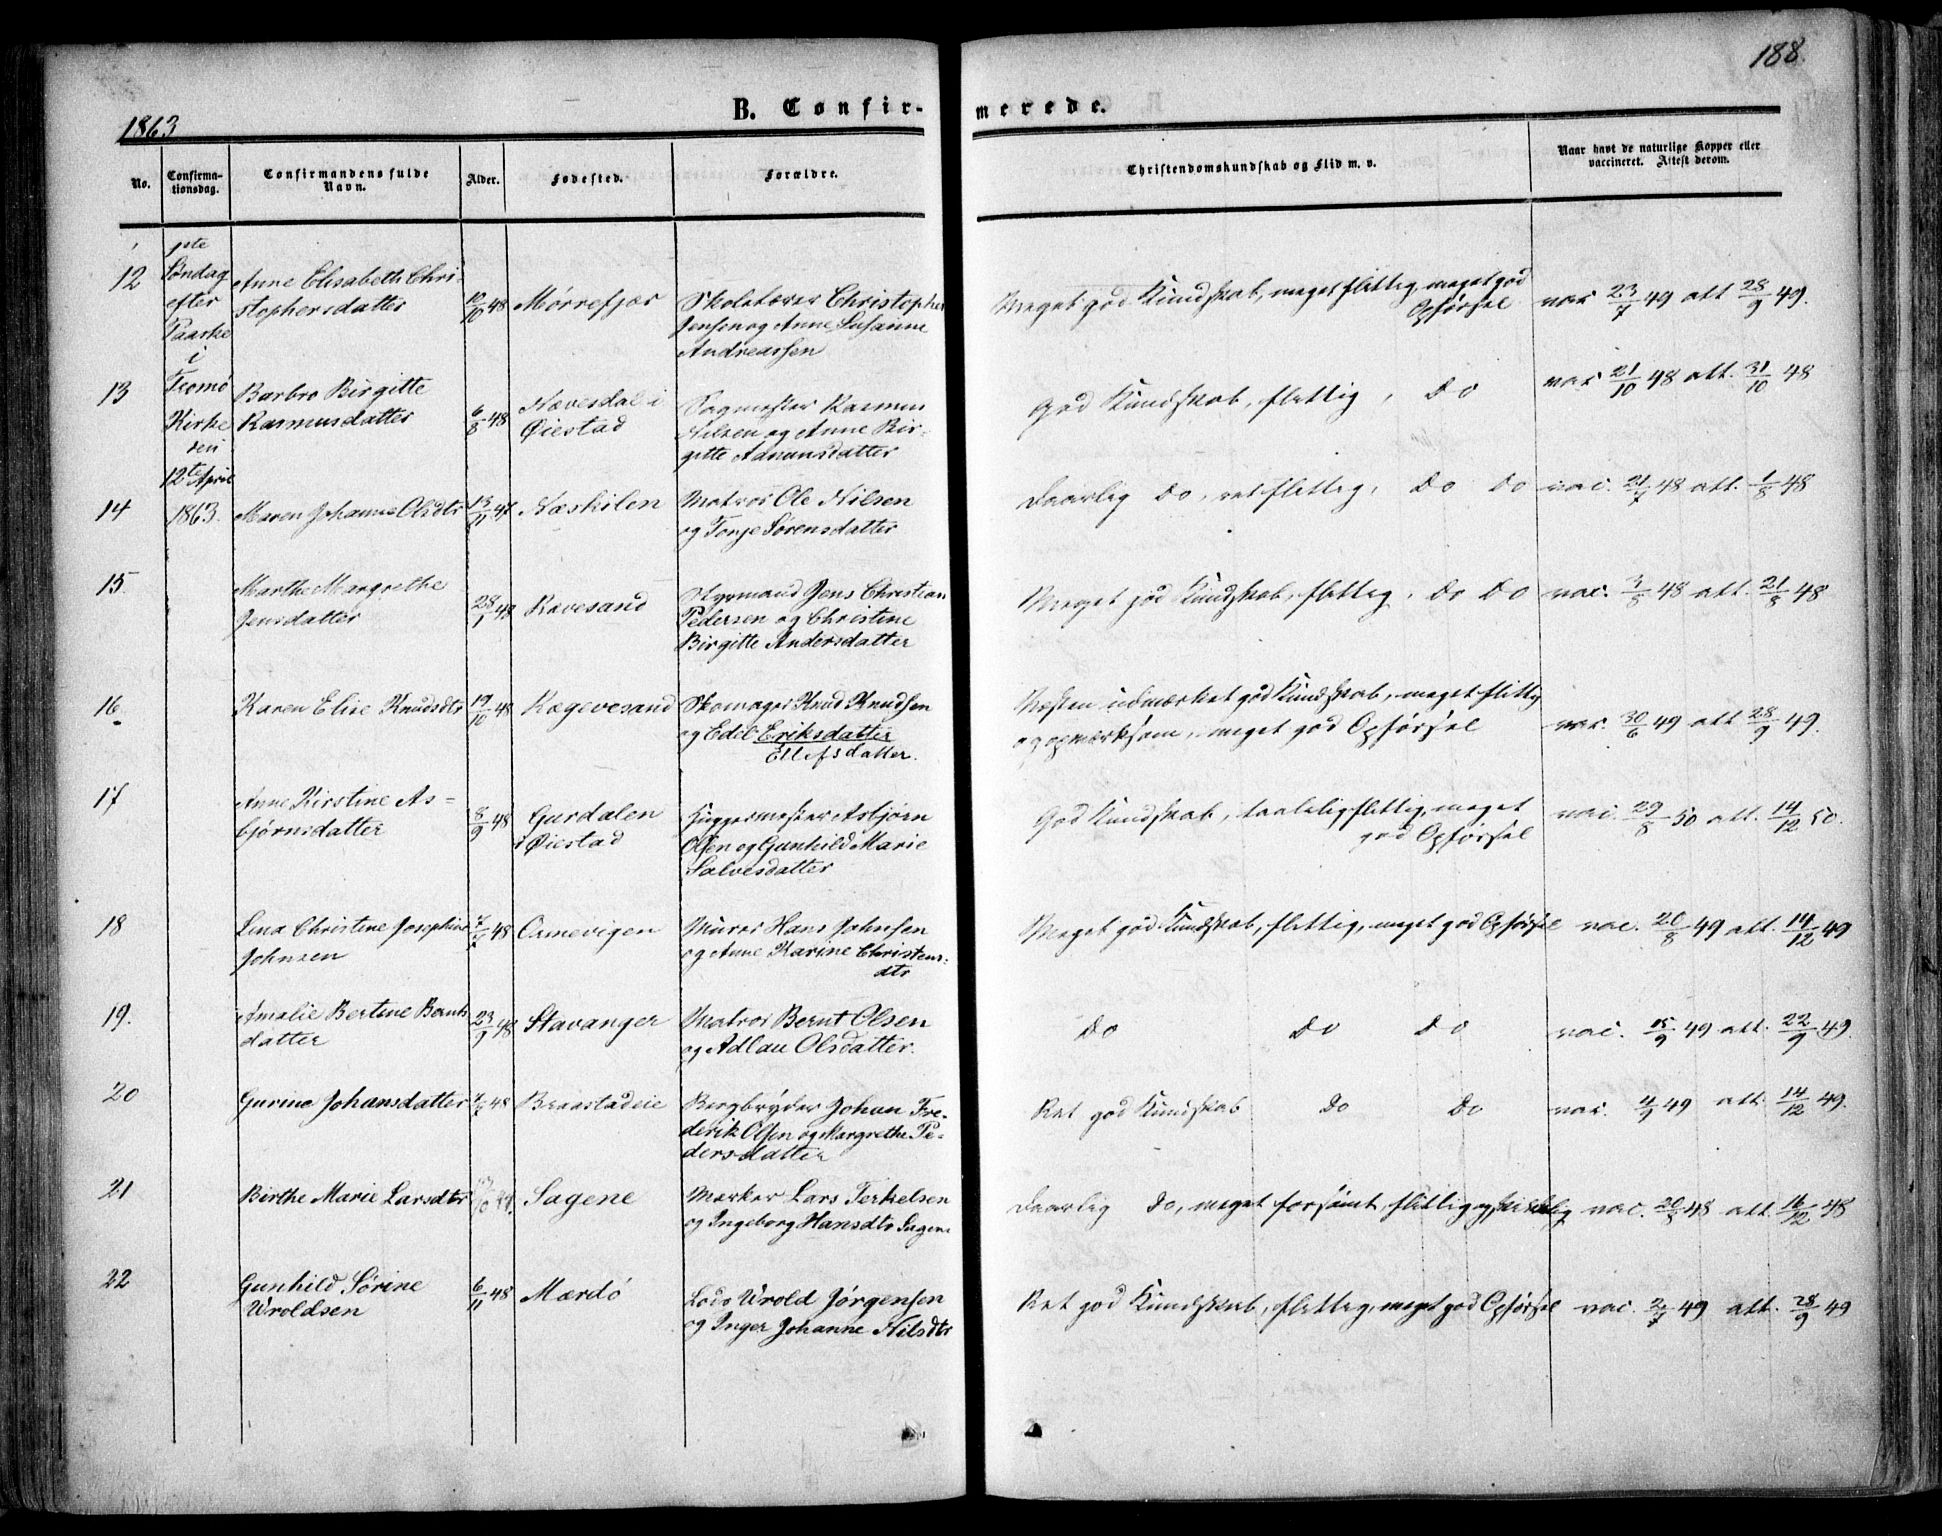 188.
1863
B. Confir-
merede.
No.
Confirma-
tionsdag.
Confirmandens fulde
Navn.
Alder.
Fødested.
Forældre.
Christendomskundskab og Flid m. v.
Naar havt de naturlige Kopper eller
vaccineret. Attest derom.
Søndag
efter
Paaske
i
Tromø
Kirke
den
12te April
1863.
12
Anne Elisabeth Chri-
stophersdatter
10/10 48
Mørrefjær
Skolelærer Christopher
Jensen og Anne Susanne
Andreassen
Meget god Kundskab, meget flittig, meget god
Opførsel
vac 23/7 49 att 28/9 49.
13
Barbro Birgitte
Rasmusdatter
6/8 48
Nævesdal i
Øiestad
Sagmester Rasmus
Nilsen og Anne Bir-
gitte Aanunsdatter
God Kundskab, flittig, Do
vac 21/10 48 att. 31/10 48
14
Maren Johanne Olsdtr
13/11 47
Næskilen
Matros Ole Nilsen
og Tonje Sørensdatter
Daarlig Do, ret flittig, Do Do
vac. 21/7 48 att. 1/8 48
15.
Marthe Margrethe
Jensdatter
28/1 48
Ravesand
Styrmand Jens Christian
Pedersen og Christine
Birgitte Andersdatter
Meget god Kundskab, flittig, Do Do
vac. 3/8 48 att. 21/8 48
16
Karen Elise Knudsdtr
19/10 48
Kagevesand
Skomager Knud Knudsen
og Edel Eriksdatter
Ellefsdatter.
Næsten udmærket god Kundskab, meget flittig
og opmærksom, meget god Opførsel
vac. 30/6 49 att 28/9 49.
17
Anne Kirstine As-
bjørnsdatter
8/9 48
Gurdalen
i Øiestad
Huggermester Asbjørn
Olsen og Gunhild Marie
Salvesdatter
God Kundskab, taalelig flittig, meget
god Opførsel
vac. 29/8 50 att. 14/12 50.
18
Lina Christine Josephine
Johnsen
48
Ormevigen
Murer Hans Johnsen
og Anne Karine Christens-
dtr
Meget god Kundskab, flittig, meget god Opførsel
vac. 20/8 49 att. 14/12 49
19.
Amalie Bertine Bernts
datter
23/9 48
Stavanger
Matros Bernt Olsen
og Adlau Olsdatter.
Do Do Do
vac. 15/9 49 att. 22/9 49.
20
Gurine Johansdatter
48
Braastadeie
Bergbryder Johan Fre-
derik Olsen og Margrethe Pe-
dersdatter
Ret god Kundskab Do Do
vac. 4/9 49 att. 14/12 49.
21
Birthe Marie Larsdtr
Sagene
Mærker Lars Terkelsen
og Ingeborg Hansdtr Sagene
Daarlig Do, meget forsømt, flittig og skikkelig
vac. 20/8 48 att. 16/12 48
22
Gunhild Sørine
Wroldsen
6/11 48
Mærdø
Lods Wrold Jørgensen
og Inger Johanne Nilsdtr
Ret god Kundskab, flittig, meget god Opførsel
vac. 2/7 49 att. 28/9 49